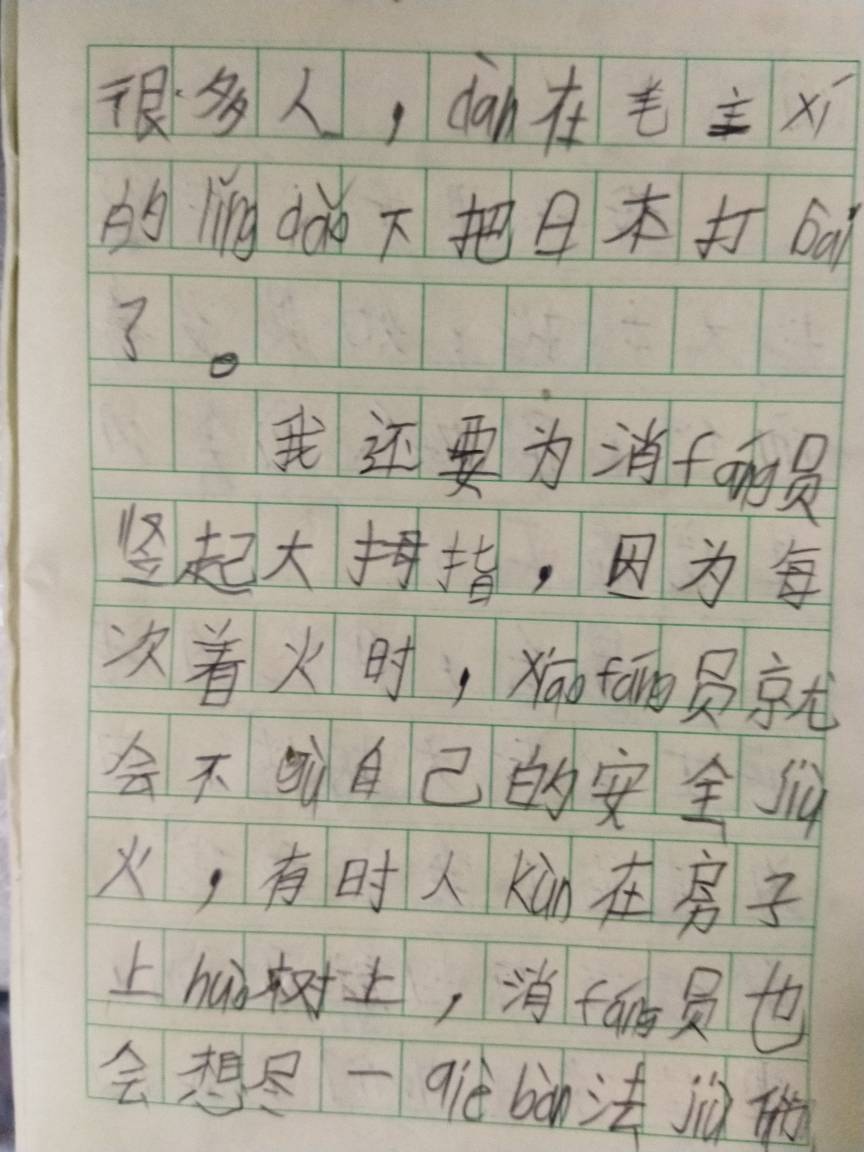 很多人，dàn在毛主xí
的lǐngdǎo下把日本打bài
了。
我还要为消fáng员
竖起大拇指，因为每
次着火时，xiāofáng员就
会不gù自己的安全jiù
火，有时人kùn在房子
上huò树上，消fáng员也
会想尽一qièbàn法jiù他们